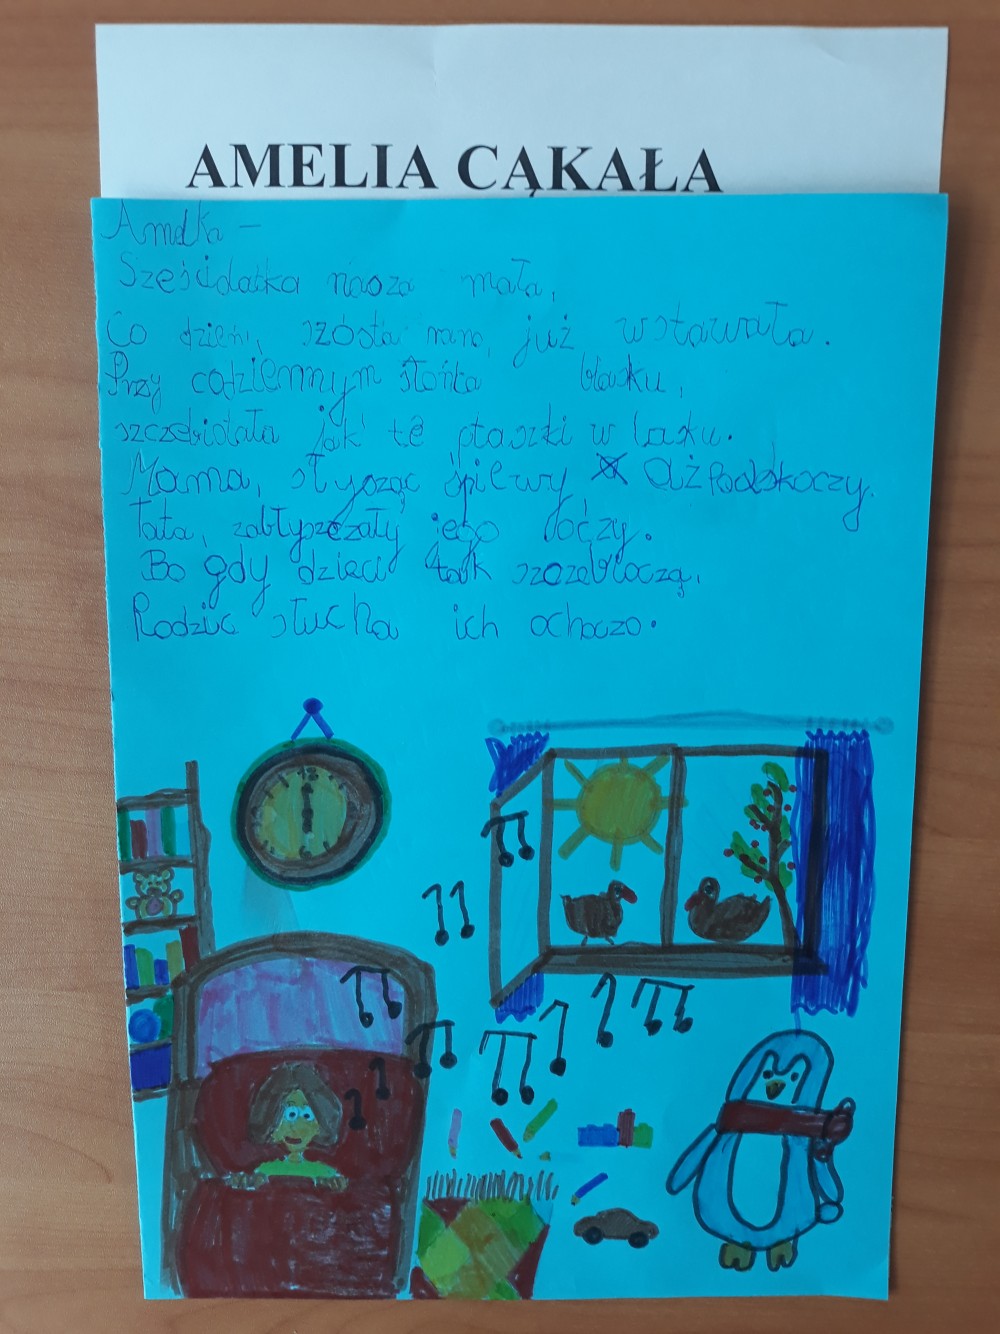 AMELIA CĄKAŁA
Amelka –
Sześciolatka nasza mała,
Co dzień, szósta rano, już wstawała.
Przy codziennym słońca blasku,
szczebiotała jak te ptaszki w lasku.
Mama, słysząc śpiewy, aż podskoczy.
Tata, zabłyszczały jego oczy.
Bo gdy dzieci tak szczebioczą,
Rodzic słucha ich ochoczo.
12
6